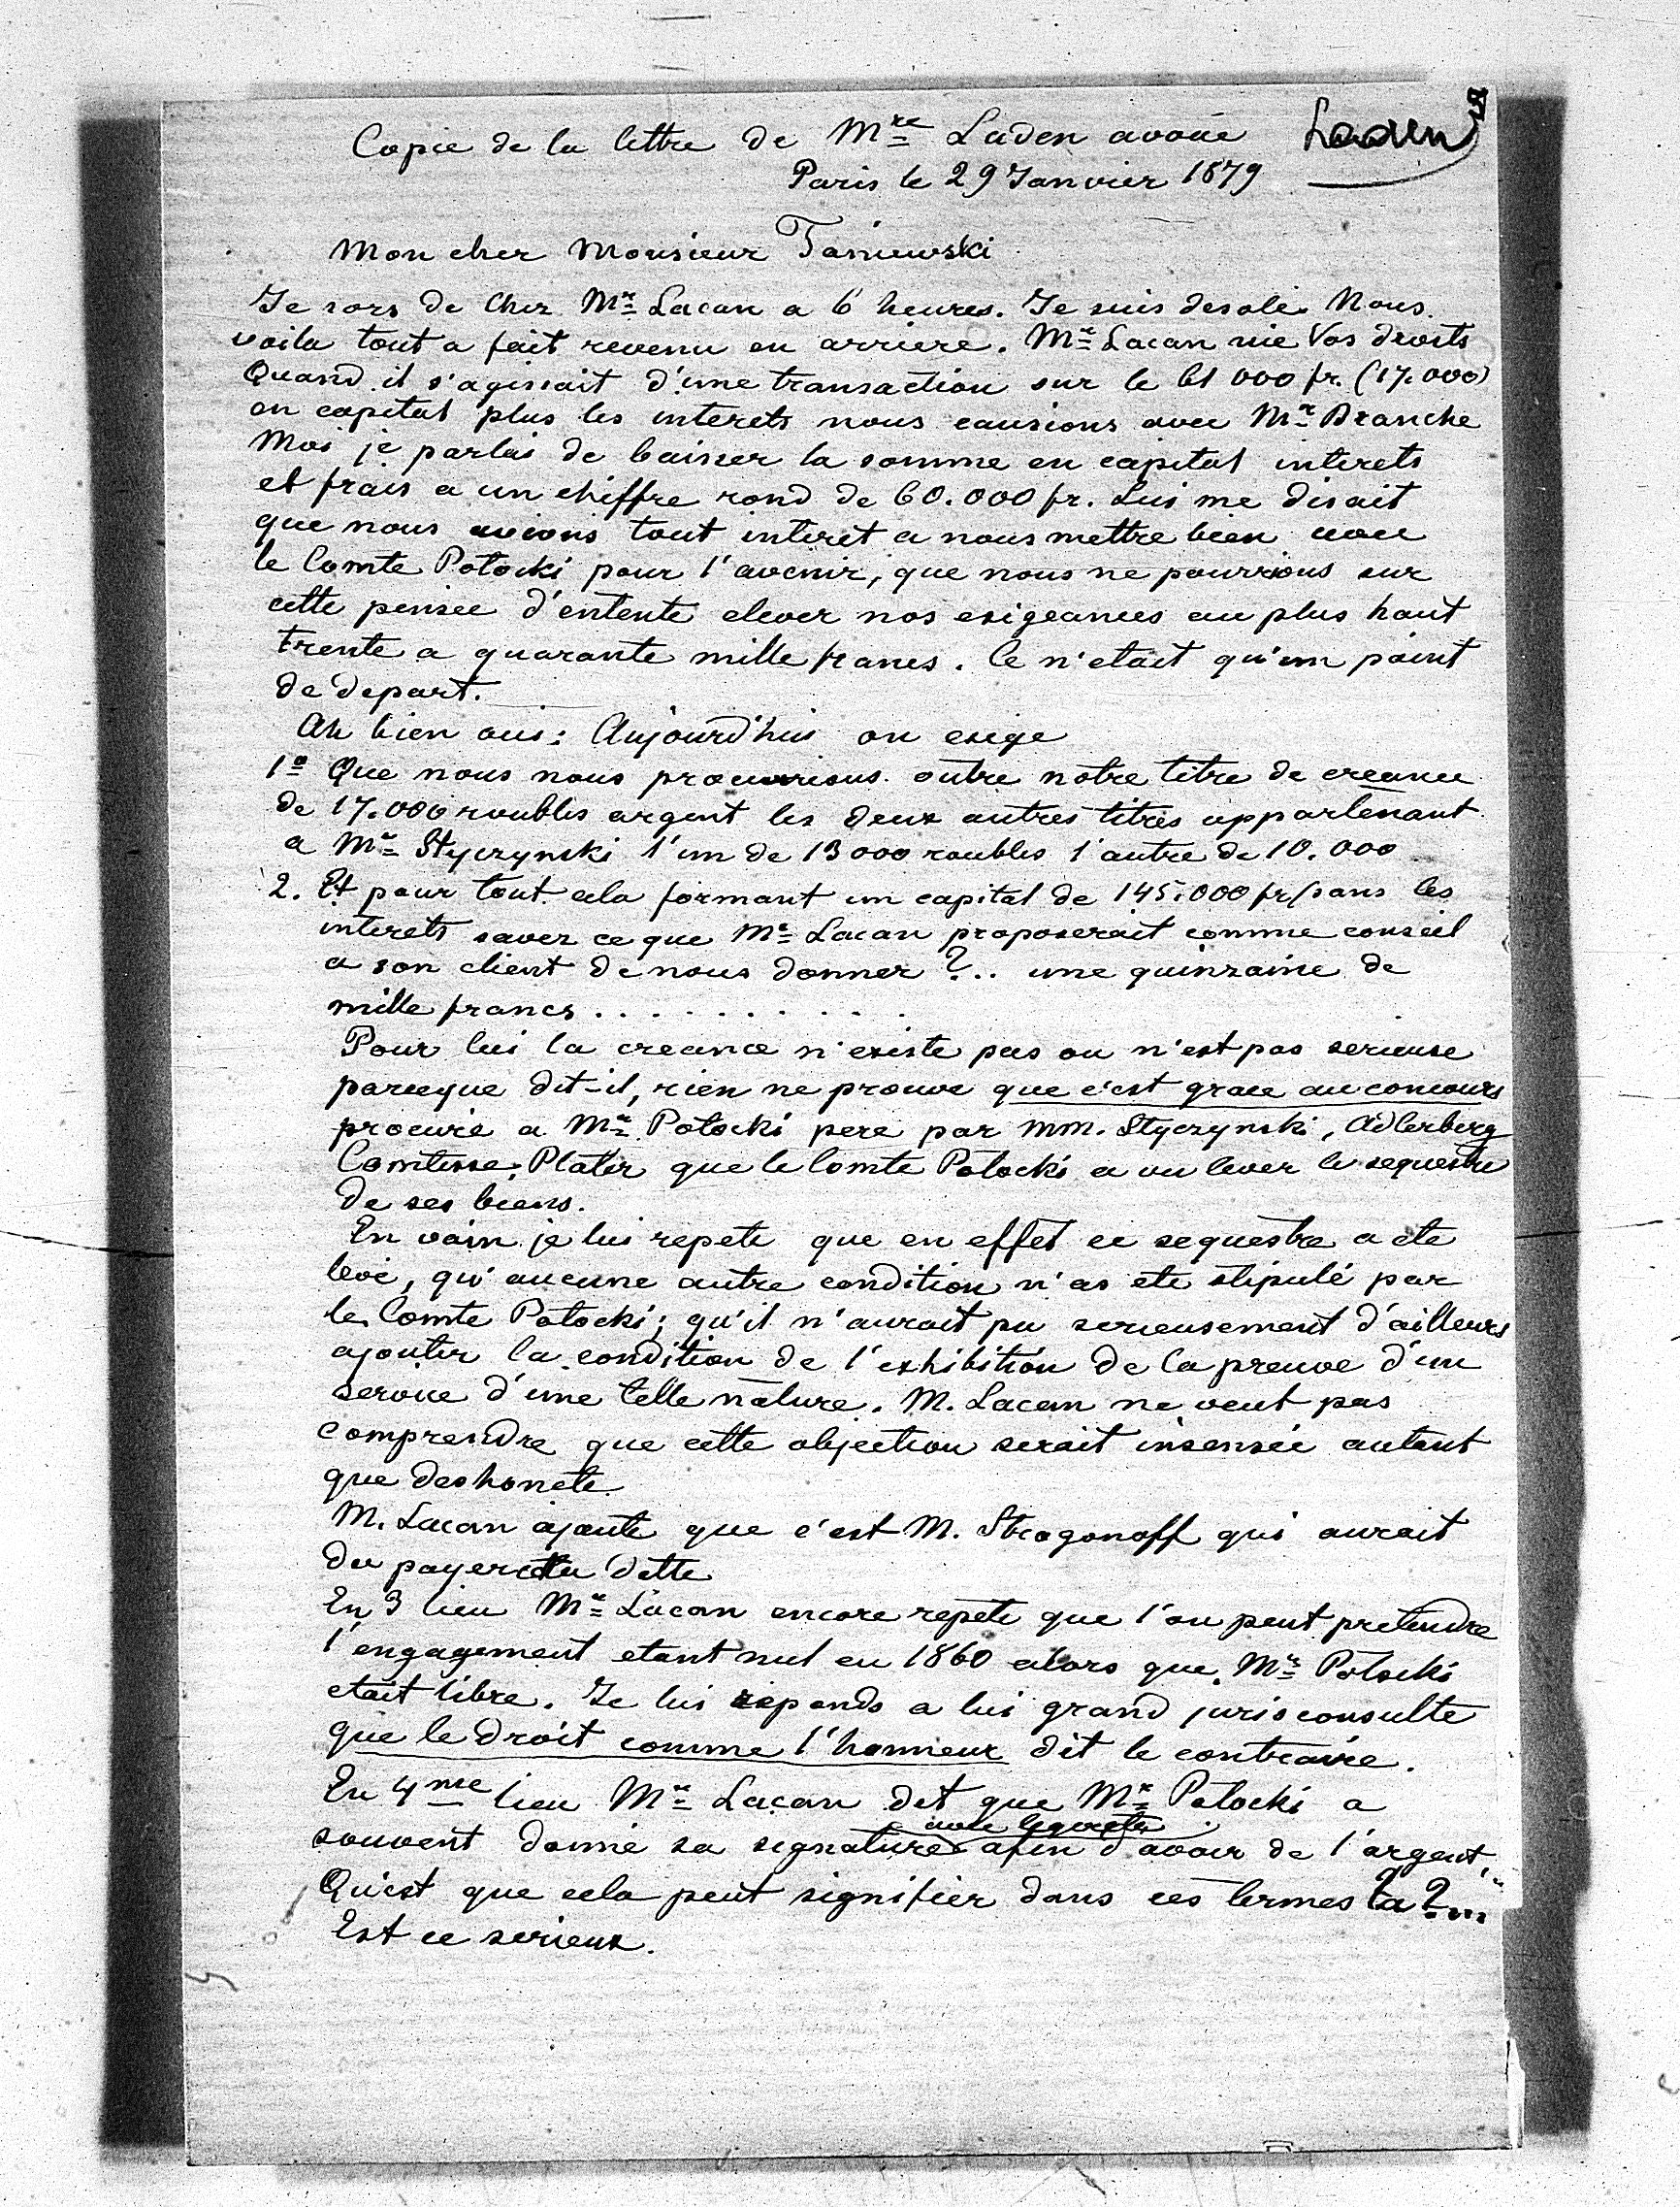 Copie de la lettre de Mre Laden avoué Laden
Paris le 29 Janvier 1879
Mon cher Monsieur Taniewski
Je sors de chez Mr Lacan a 6 heures. Je suis desolé. Nous
voila tout a fait revenu en arriere. Mr Lacan nie Vos droits
Quand il s'agissait d'une transaction sur le 61 000 fr. (17.000)
en capital plus les interets nous causions avec Mr Branche
Moi je parlais de baisser la somme en capital interets
et frais a un chiffre rond de 60.000 fr. Lui me disait
que nous avions tout interet a nous mettre bien avec
le Comte Potocki pour l'avenir, que nous ne pourrions sur
cette pensee d'entente elever nos exigeances au plus haut
trente a quarante mille francs. Ce n'etait qu'un point
de depart.
Ah bien oui: Aujourd'hui on exige
1º Que nous nous procurrions outre notre titre de creance
de 17.000 roubles argent les deux autres titres appartenant
a Mr Styczynski l'un de 13 000 roubles l'autre de 10.000
2. Et pour tout cela formant un capital de 145.000 fr sans les
interets savez ce que Mr Lacan proposerait comme conseil
a son client de nous donner ?.. une quinzaine de
mille francs . . . . . . . . . .
Pour lui la creance n'existe pas ou n'est pas serieuse
parceque dit-il, rien ne prouve que c'est grace au concours
procuré a Mr Potocki pere par MM. Styczynski, Adlerberg
Comtesse Plater que le Comte Potocki a vu lever le sequestre
de ses biens.
En vain je lui repete que en effet ce sequestre a ete
levé, qu'aucune autre condition n'as ete stipulé par
le Comte Potocki; qu'il n'aurait pu serieusement d'ailleurs
ajouter la condition de l'exhibition de la preuve d'un
service d'une telle nature. M. Lacan ne veut pas
comprendre que cette objection serait insensée autant
que deshonete.
M. Lacan ajoute que c'est M. Strogonoff qui aurait
du payer dette
En 3 lieu Mr Lacan encore repete que l'on peut pretendre
l'engagement etant nul en 1860 alors que Mr Potocki
etait libre. Je lui reponds a lui grand jurisconsulte
que le droit comme l'honneur dit le contraire.
En 4me lieu Mr Lacan dit que Mr Potocki a
souvent donné sa signature afin d'avoir de l'argent,
Qu'est que cela peut signifier dans ces termes la ?...
Est ce serieux.